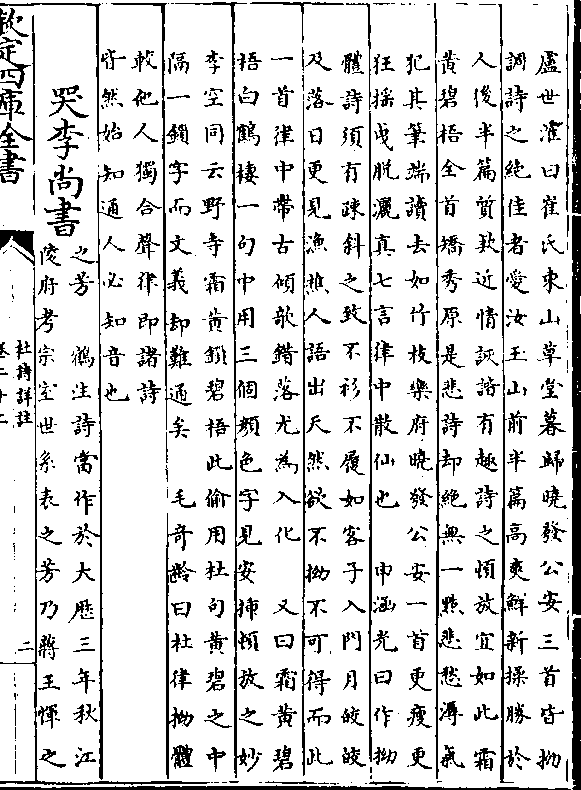 盧世㴶曰崔氏東山草堂暮歸曉發公安三首皆拗
調詩之絶佳者愛汝玉山前半篇高爽鮮新操勝於
人後半篇質欵近情詼諧有趣詩之頓放宜如此霜
黄碧梧全首矯秀原是悲詩却絶無一㸃悲愁溽氣
犯其筆端讀去如竹枝樂府曉發公安一首更瘦更
狂揺曳脱灑真七言律中散仙也　申涵光曰作拗
體詩須有疎斜之致不衫不履如客子入門月皎皎
及落日更見漁樵人語出天然欲不拗不可得而此
一首律中帶古傾欹錯落尤為入化　又曰霜黄碧
梧白鶴棲一句中用三個顔色字見安揷頓放之妙
李空同云野寺霜黄鎖碧梧此偷用杜句黄碧之中
隔一鎖字而文義却難通矣　毛竒齡曰杜律拗體
較他人獨合聲律即諸詩
皆然始知通人必知音也
哭李尚書
之芳　鶴注詩當作於大歴三年秋江
陵府考宗室世系表之芳乃蔣王惲之
欽定四庫全書
杜詩詳註
卷二十二
二